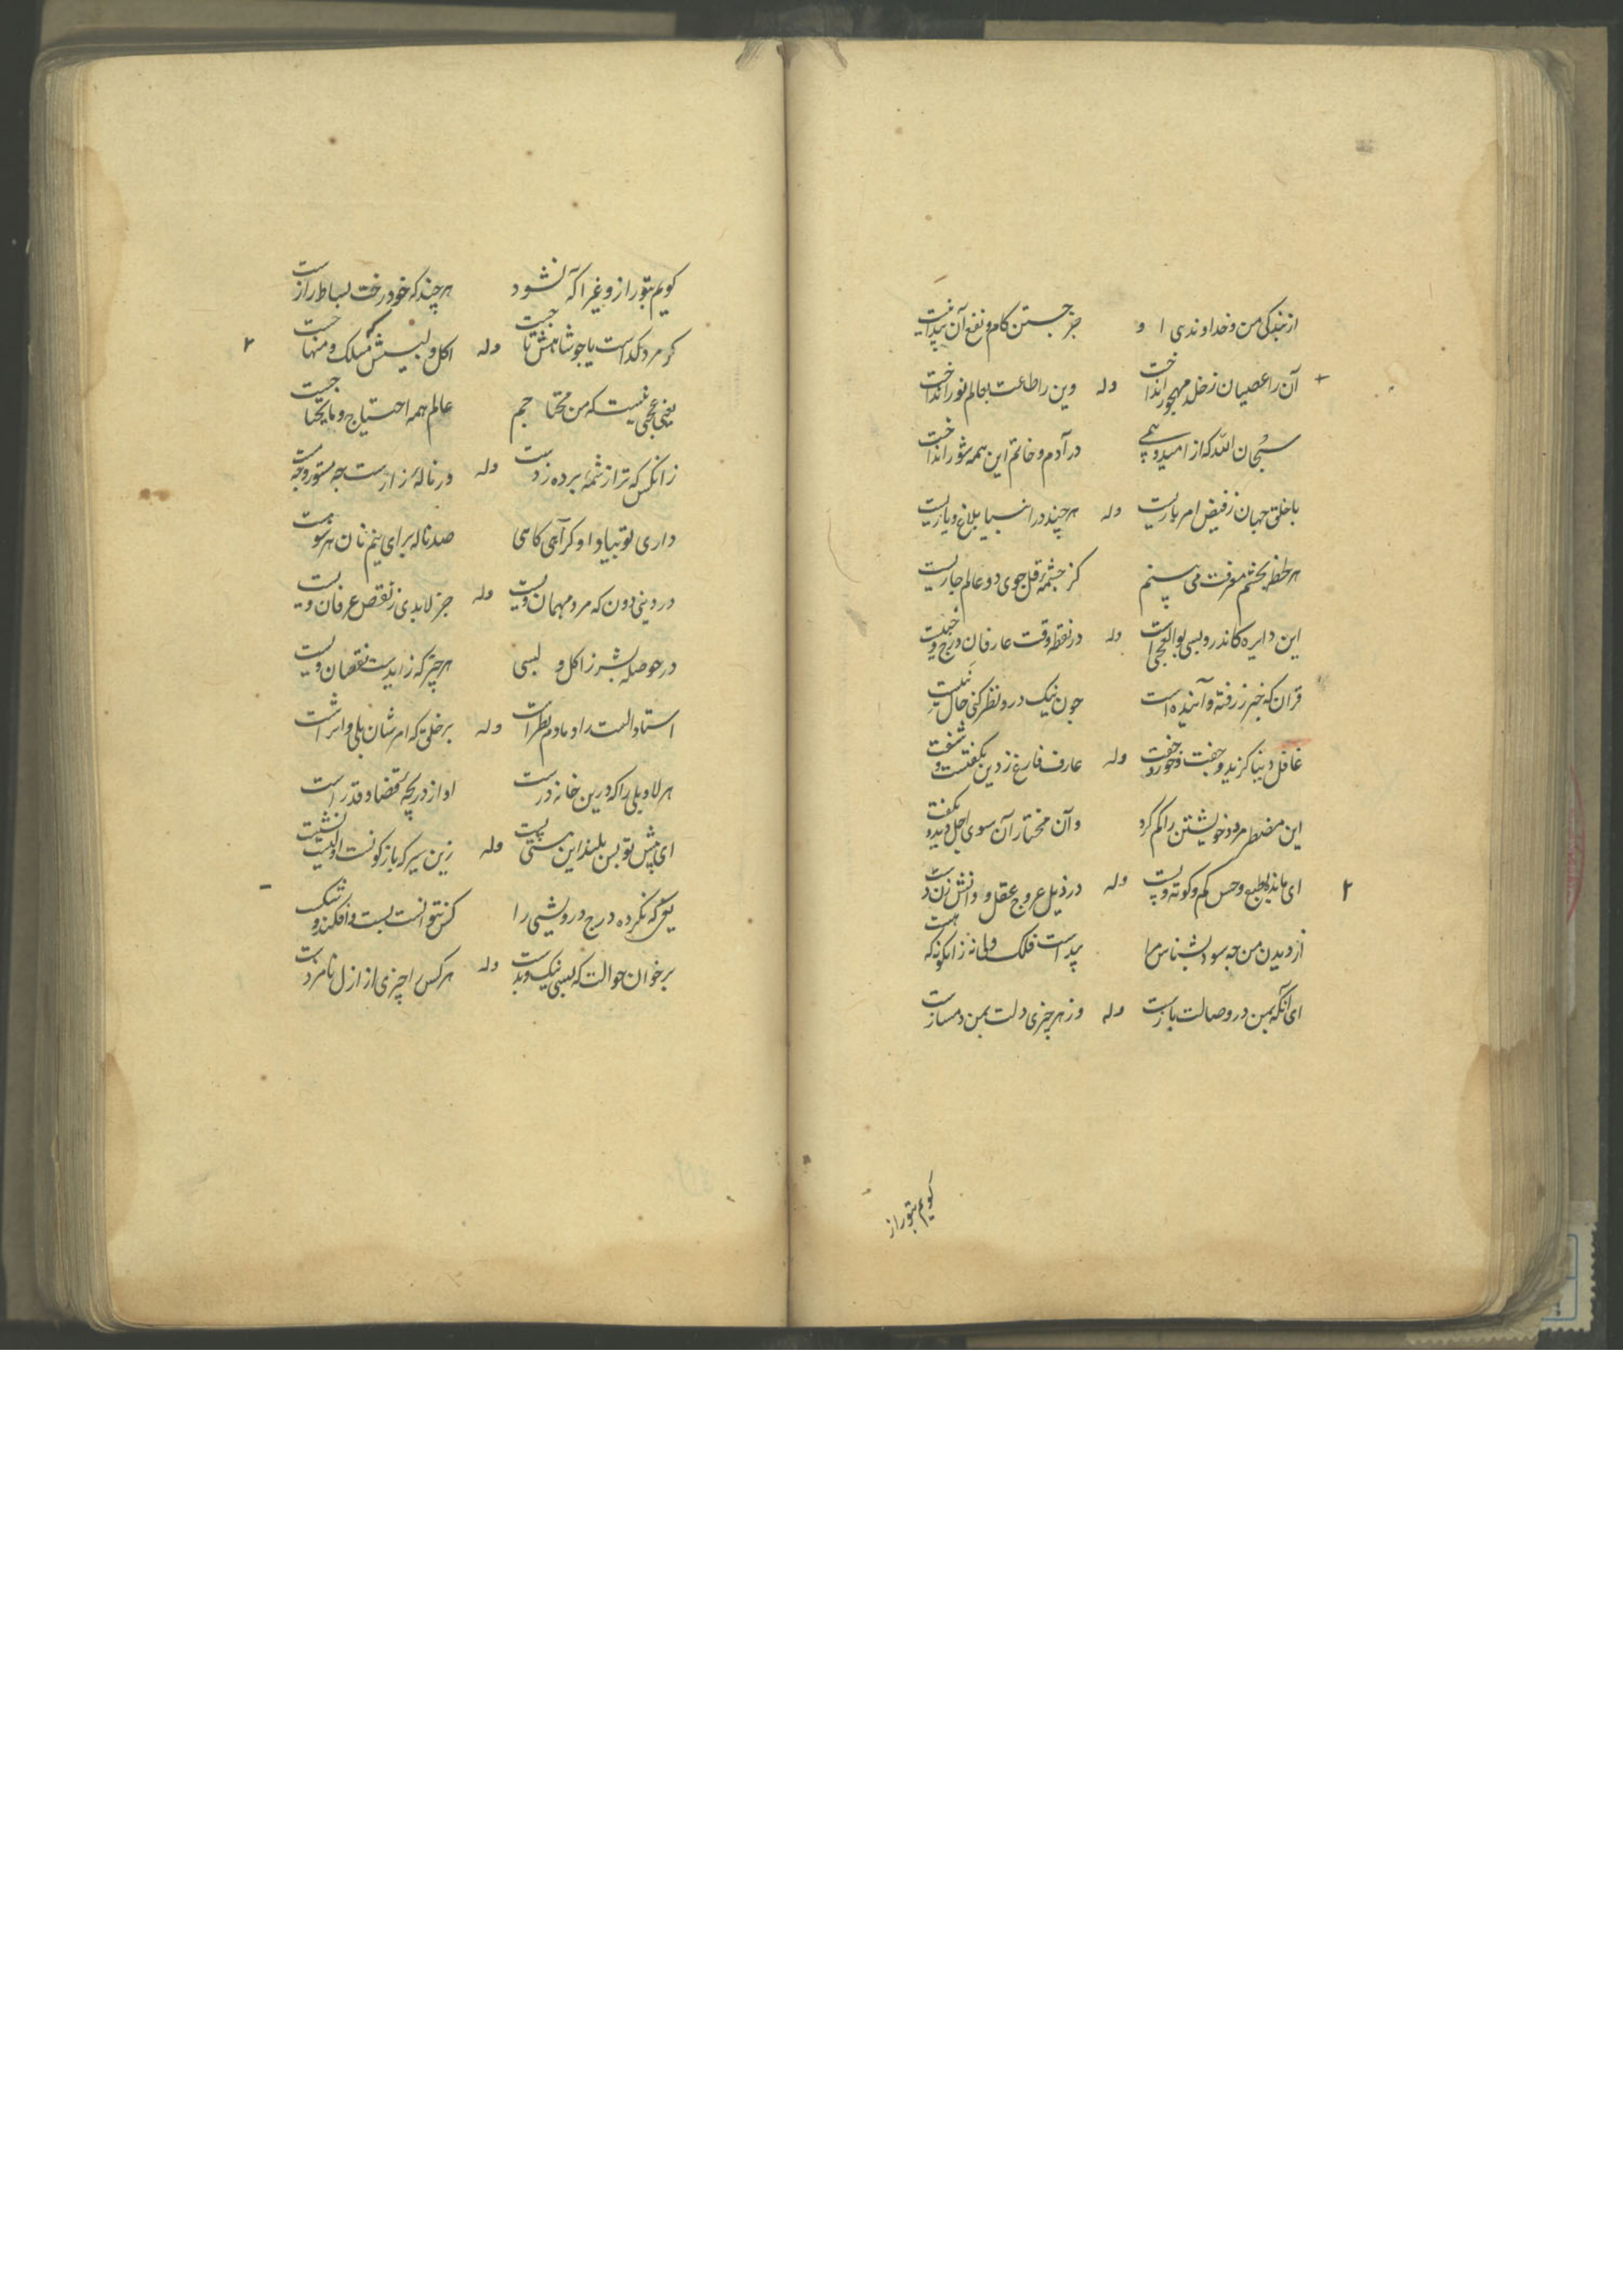 از بندگی من و خداوندی او جز جستن کام و نفع آن پیدا نیست
آن را عصیان ز خلد مهجور انداخت وله وین را طاعت بعالم نور انداخت
سبحان الله که از امید و بیمی در آدم و خاتم این همه شور انداخت
با خلق جهان ز فیض امر باریست وله هر چند در انبیا بلاغ و یاریست
هر لحظه بچشم معرفت می بینم کز چشمهٔ قل جوی دو عالم جاریست
این دایره کاندرو بسی بوالعجبی است وله در نقطه وقت عارفان درج
قران که خبر ز رفته و آینده است چون نیک درو نظر کنی حال
غافل دنیا گزید و جفت و خورد و خفت وله عارف فارغ ز دین بگفتست و شنفت
این مضطر مرد و خویشتن را گم کرد و آن مختار آن سوی اجل دید و بگفت
ای مانده بطبع و حس کم و کوته و پست وله در ذیل عروج عقل و دانش زن دست
از دیدن من چه سود بشناس مرا پیداست فلک ولی نه زانگونه که هست
ای آنکه بمن در وصالت بازست وله وز هر چیزی دلت بمن دمسازست
کویم بتو راز
کویم بتو راز و غیر آگه نشود هر چند که خود درخت بساط رازست
کر مرد کداست یا چو شاهش تا جست وله اکل و لبسش مسلک و منهاجست
یعنی عجبی نیست که من محتاجم عالم همه احتیاج و مایحتاجست
زانکس که ترا ز شمه برده زدست وله ور نالهٔ زارست چه مستور و چه مست
داری تو بیاد او کر آهی کاهی صد ناله برای نیم نان هر سو هست
در دینی دون که مرد مهمان ویست وله جز لابدی ز نقص عرفان ویست
در حوصله بشر ز اکل و لبسی هر چیز که زایدست نقصان ویست
استاد الست را دمادم نظرست وله بر خلق که امرشان بلی را اثرست
هر لا و بلی را که درین خانه درست او از دریچه قضا و قدر است
ای پیش تو بس بلند این هستی پست وله زین سیر که باز کونست
یوغ که نکرده درج درویشی را کس نتوانست بست و افکند و شکست
بر خوان حوالت که بسی نیک و بدست وله هر کس را چیزی از ازل نامزدست